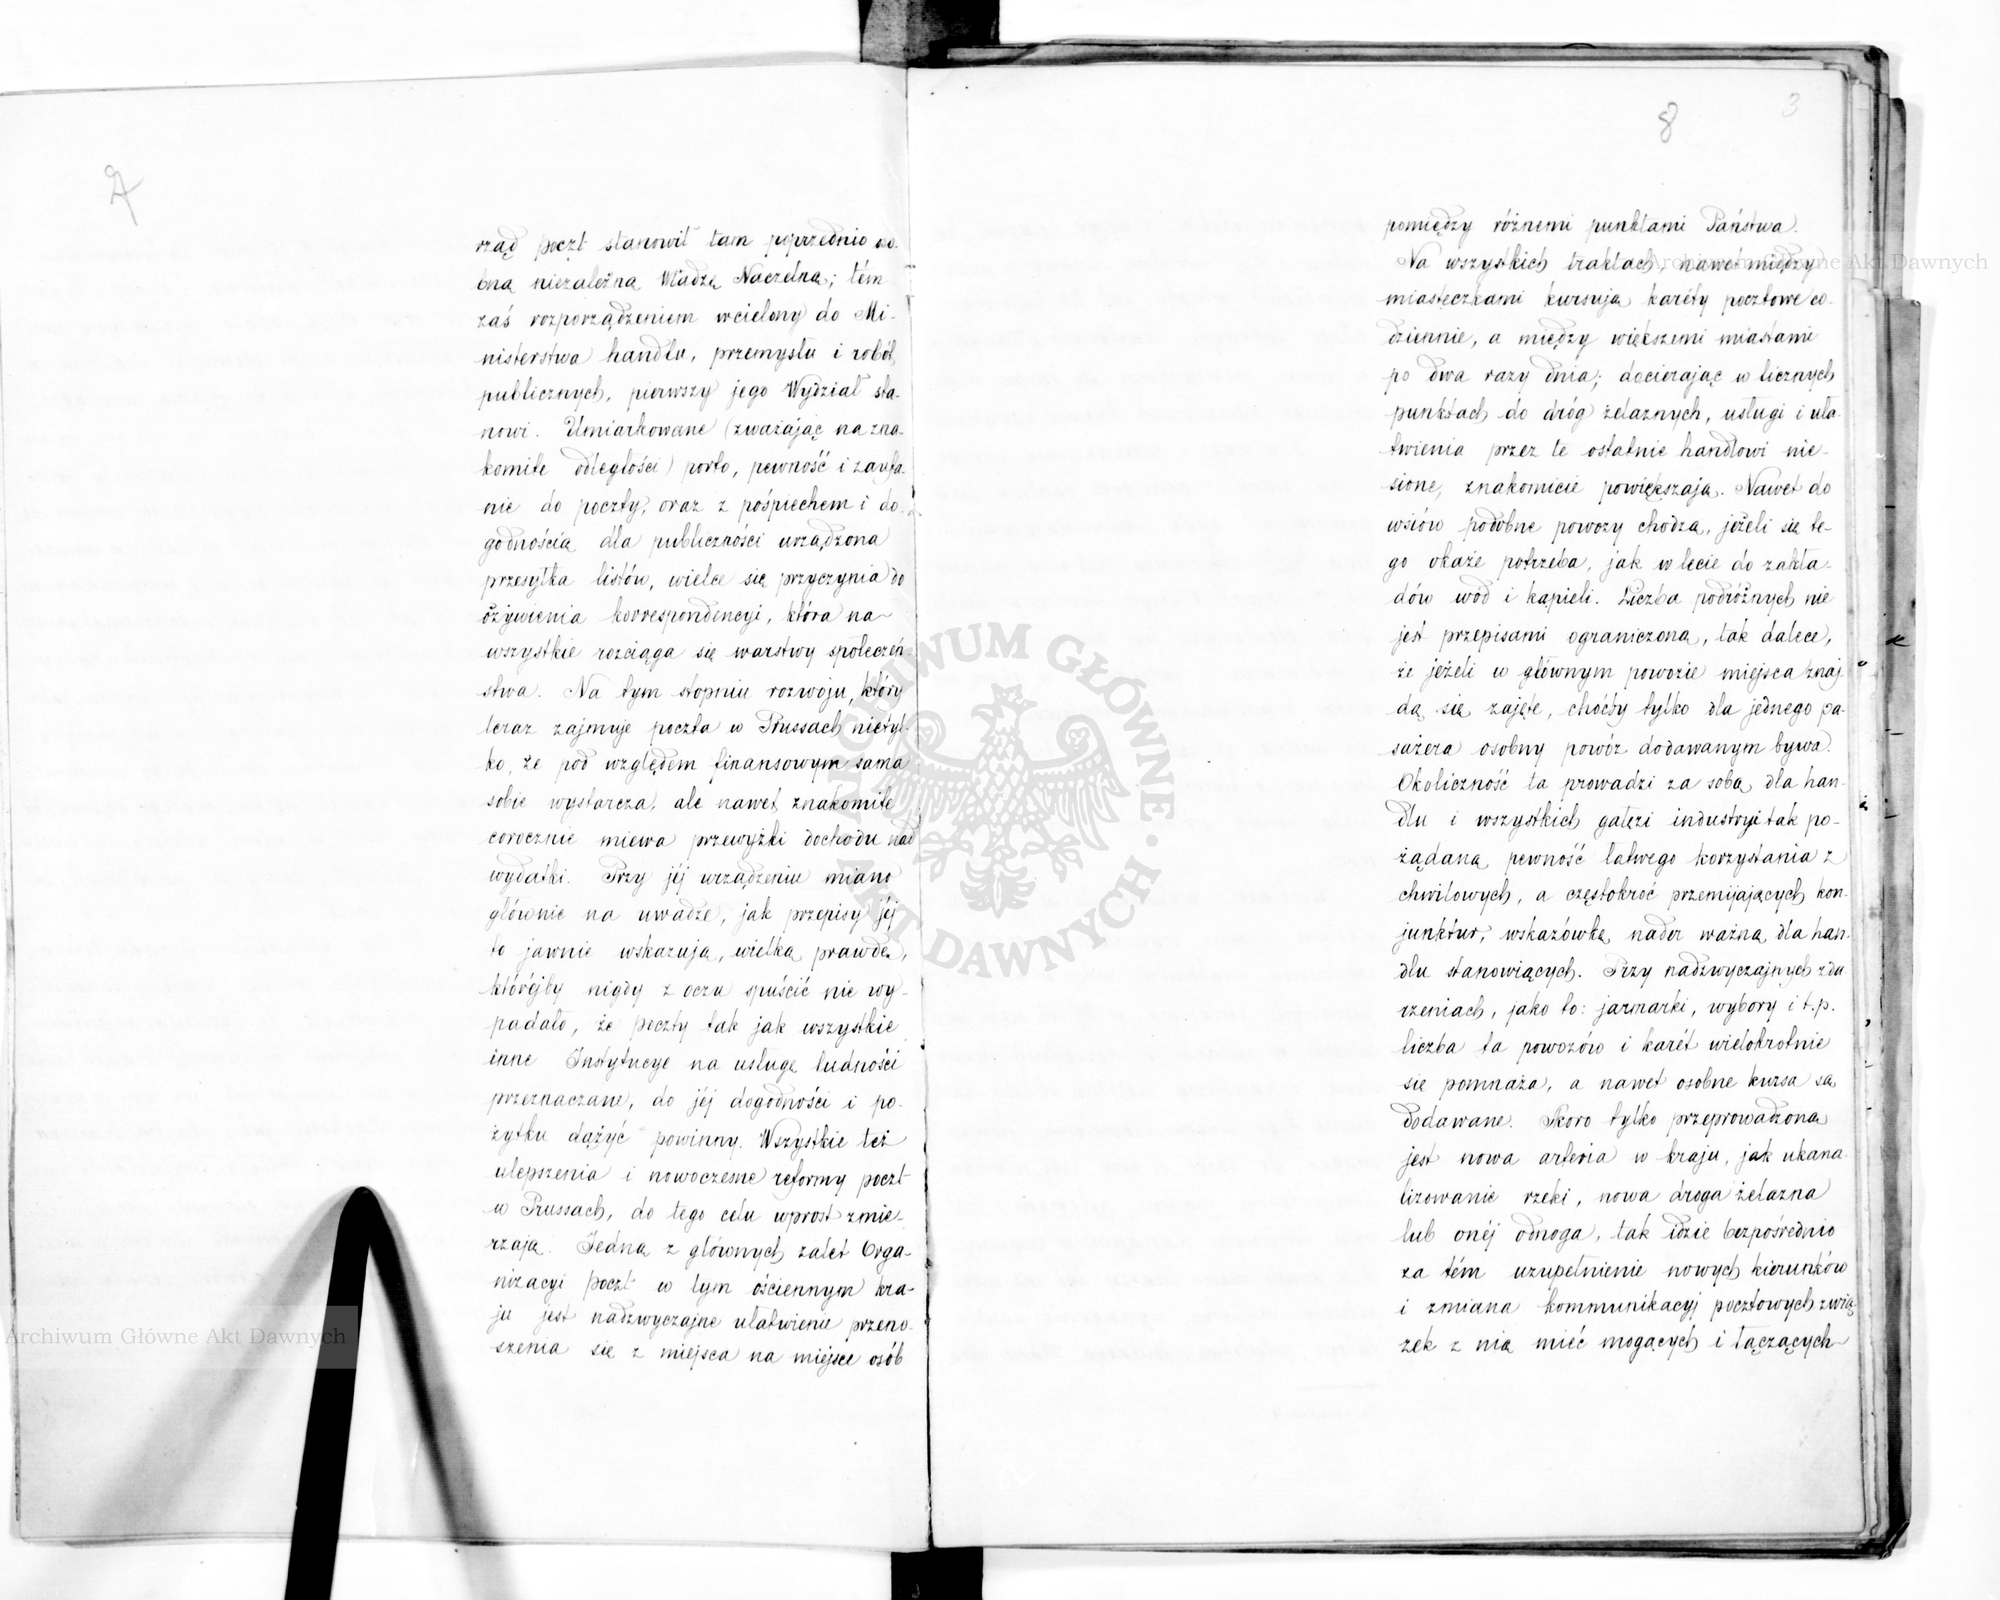 rząd poczt stanowił tam poprzednio oso-
bną niezależną Władzę Naczelną; tém
zaś rozporządzeniem wcielony do Mi-
nisterstwa handlu, przemysłu i robót
publicznych, pierwszy jego Wydział sta-
nowi. Umiarkowane (zważając na zna-
komite odległości) porto, pewność i zaufa-
nie do poczty, oraz z pośpiechem i do-
godnością dla publiczności urządzona
przesyłka listów, wielce się przyczynia do
ożywienia korrespondencyi, która na
wszystkie rozciąga się warstwy społeczeń-
stwa. Na tym stopniu rozwoju, który
teraz zajmuje poczta w Prussach nietyl-
ko, że pod względem finansowym sama
sobie wystarcza, ale nawet znakomite
corocznie miewa przewyżki dochodu nad
wydatki. Przy jéj urządzeniu miano
głównie na uwadze, jak przepisy jéj
to jawnie wskazują, wielką prawdę,
któréjby nigdy z oczu spuścić nie wy-
padało, że poczty tak jak wszystkie
inne Instytucye na usługę ludności
przeznaczane, do jéj dogodności i po-
żytku dążyć powinny. Wszystkie też
ulepszenia i nowoczesne reformy poczt
w Prussach, do tego celu wprost zmie-
rzają. Jedną z głównych zalet Orga-
nizacyi poczt w tym ościennym kra-
ju jest nadzwyczajne ułatwienie przeno-
szenia się z miejsca na miejsce osób
8 3
pomiędzy różnemi punktami Państwa.
Na wszystkich traktach, nawet między
miasteczkami kursują karéty pocztowe co-
dziennie, a między większemi miastami
po dwa razy dnia; docierając w licznych
punktach do dróg żelaznych, usługi i uła-
twienia przez te ostatnie handlowi nie-
sione, znakomicie powiększają. Nawet do
wsiów podobne powozy chodzą, jeżeli się te-
go okaże potrzeba, jak w lecie do zakła-
dów wód i kąpieli. Liczba podróżnych nie
jest przepisami ograniczoną, tak dalece,
że jeżeli w głównym powozie miejsca znaj
dą się zajęte, choćby tylko dla jednego pa-
sażera osobny powóz dodawanym bywa.
Okoliczność ta prowadzi za sobą dla han-
dlu i wszystkich gałęzi industryi tak po-
żądaną pewność łatwego korzystania z
chwilowych, a częstokroć przemijających kon-
junktur, wskazówkę nader ważną dla han-
dlu stanowiących. Przy nadzwyczajnych zda
rzeniach, jako to: jarmarki, wybory i t.p.
liczba ta powozów i karét wielokrotnie
się pomnaża, a nawet osobne kursa są
dodawane. Skoro tylko przeprowadzoną
jest nowa arteria w kraju, jak ukana
lizowanie rzeki, nowa droga żelazna
lub onéj odnoga, tak idzie bezpośrednio
za tém uzupełnienie nowych kierunków
i zmiana kommunikacyj pocztowych zwią
zek z nią mieć mogących i łączących
Archiwum Główne Akt Dawnych
Archiwum Główne Akt Dawnych
ARCHIWUM GŁÓWNE · AKT DAWNYCH ·